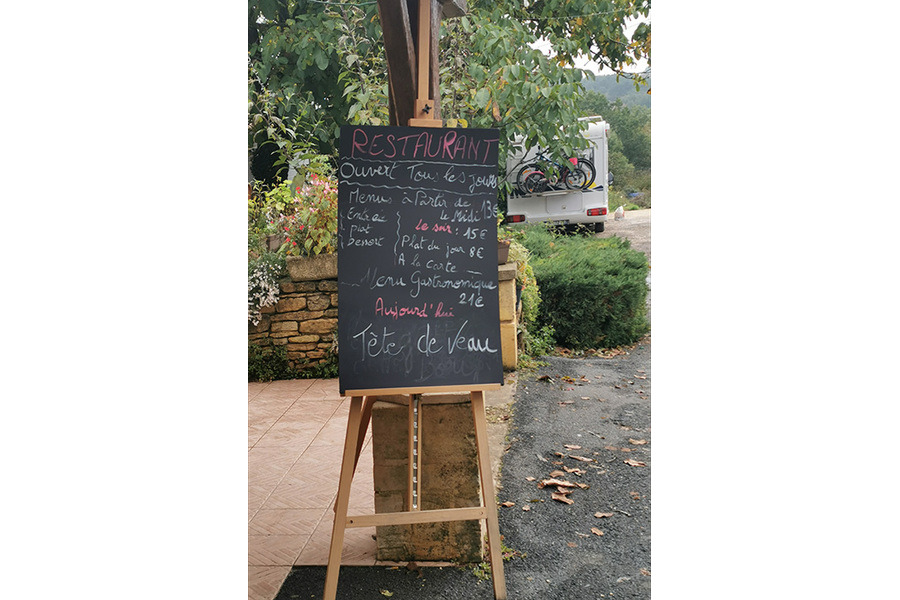 RESTAURANT
Ouvert Tous les jours
Menus à Partir de 13€
le Midi
Entrée
plat
dessert
Le soir : 15€
Plat du jour 8€
A la Carte
Menu Gastronomique
21€
Aujourd'hui
Tête de Veau